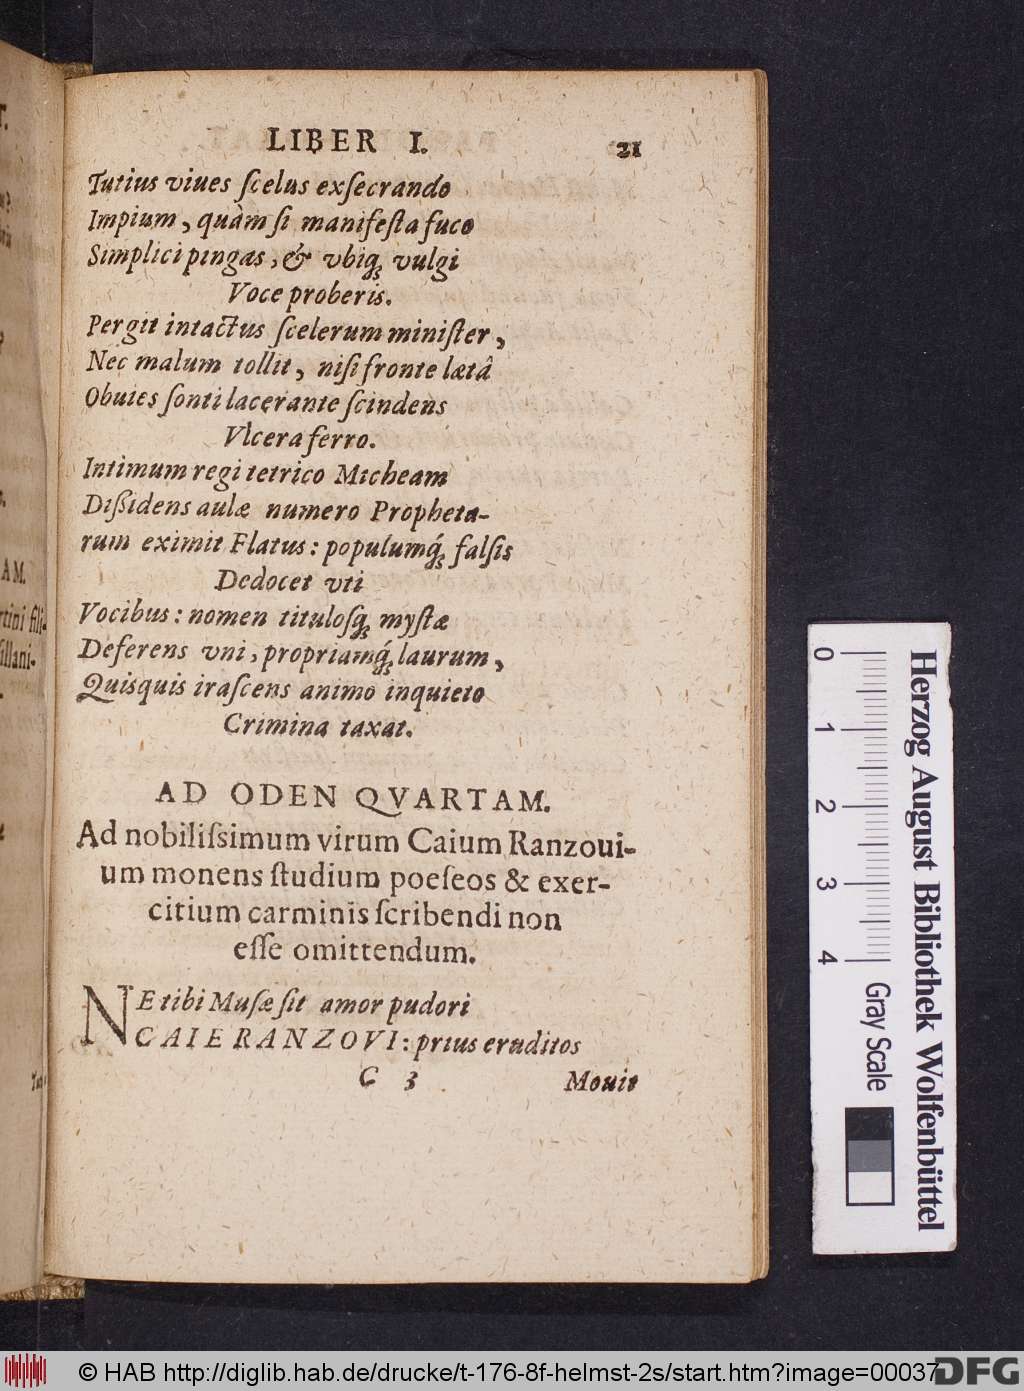 LIBER I. 21
Tutius viues ſcelus exſecrando
Impium, quàm ſi manifeſta fuco
Simplici pingas, & vbiq́; vulgi
Voce proberis.
Pergit intactus ſcelerum miniſter,
Nec malum tollit, niſi fronte lætâ
Obuies ſonti lacerante ſcindens
Vlcera ferro.
Intimum regi tetrico Micheam
Diſſidens aulæ numero Propheta-
rum eximit Flatus: populumq́; falſis
Dedocet vti
Vocibus: nomen tituloſq; myſtæ
Deferens vni, propriamq́; laurum,
Quisquis iraſcens animo inquieto
Crimina taxat.
AD ODEN QVARTAM.
Ad nobiliſsimum virum Caium Ranzoui-
um monens ſtudium poeſeos & exer-
citium carminis ſcribendi non
eſſe omittendum.
NE tibi Muſæ ſit amor pudori
CAIE RANZOVI: prius eruditos
C 3 Mouit
T.
AM.
rtini fili-
illani-
0 1 2 3 4 Gray Scale
Herzog August Bibliothek Wolfenbüttel
© HAB http://diglib.hab.de/drucke/t-176-8f-helmst-2s/start.htm?image=00037
DFG